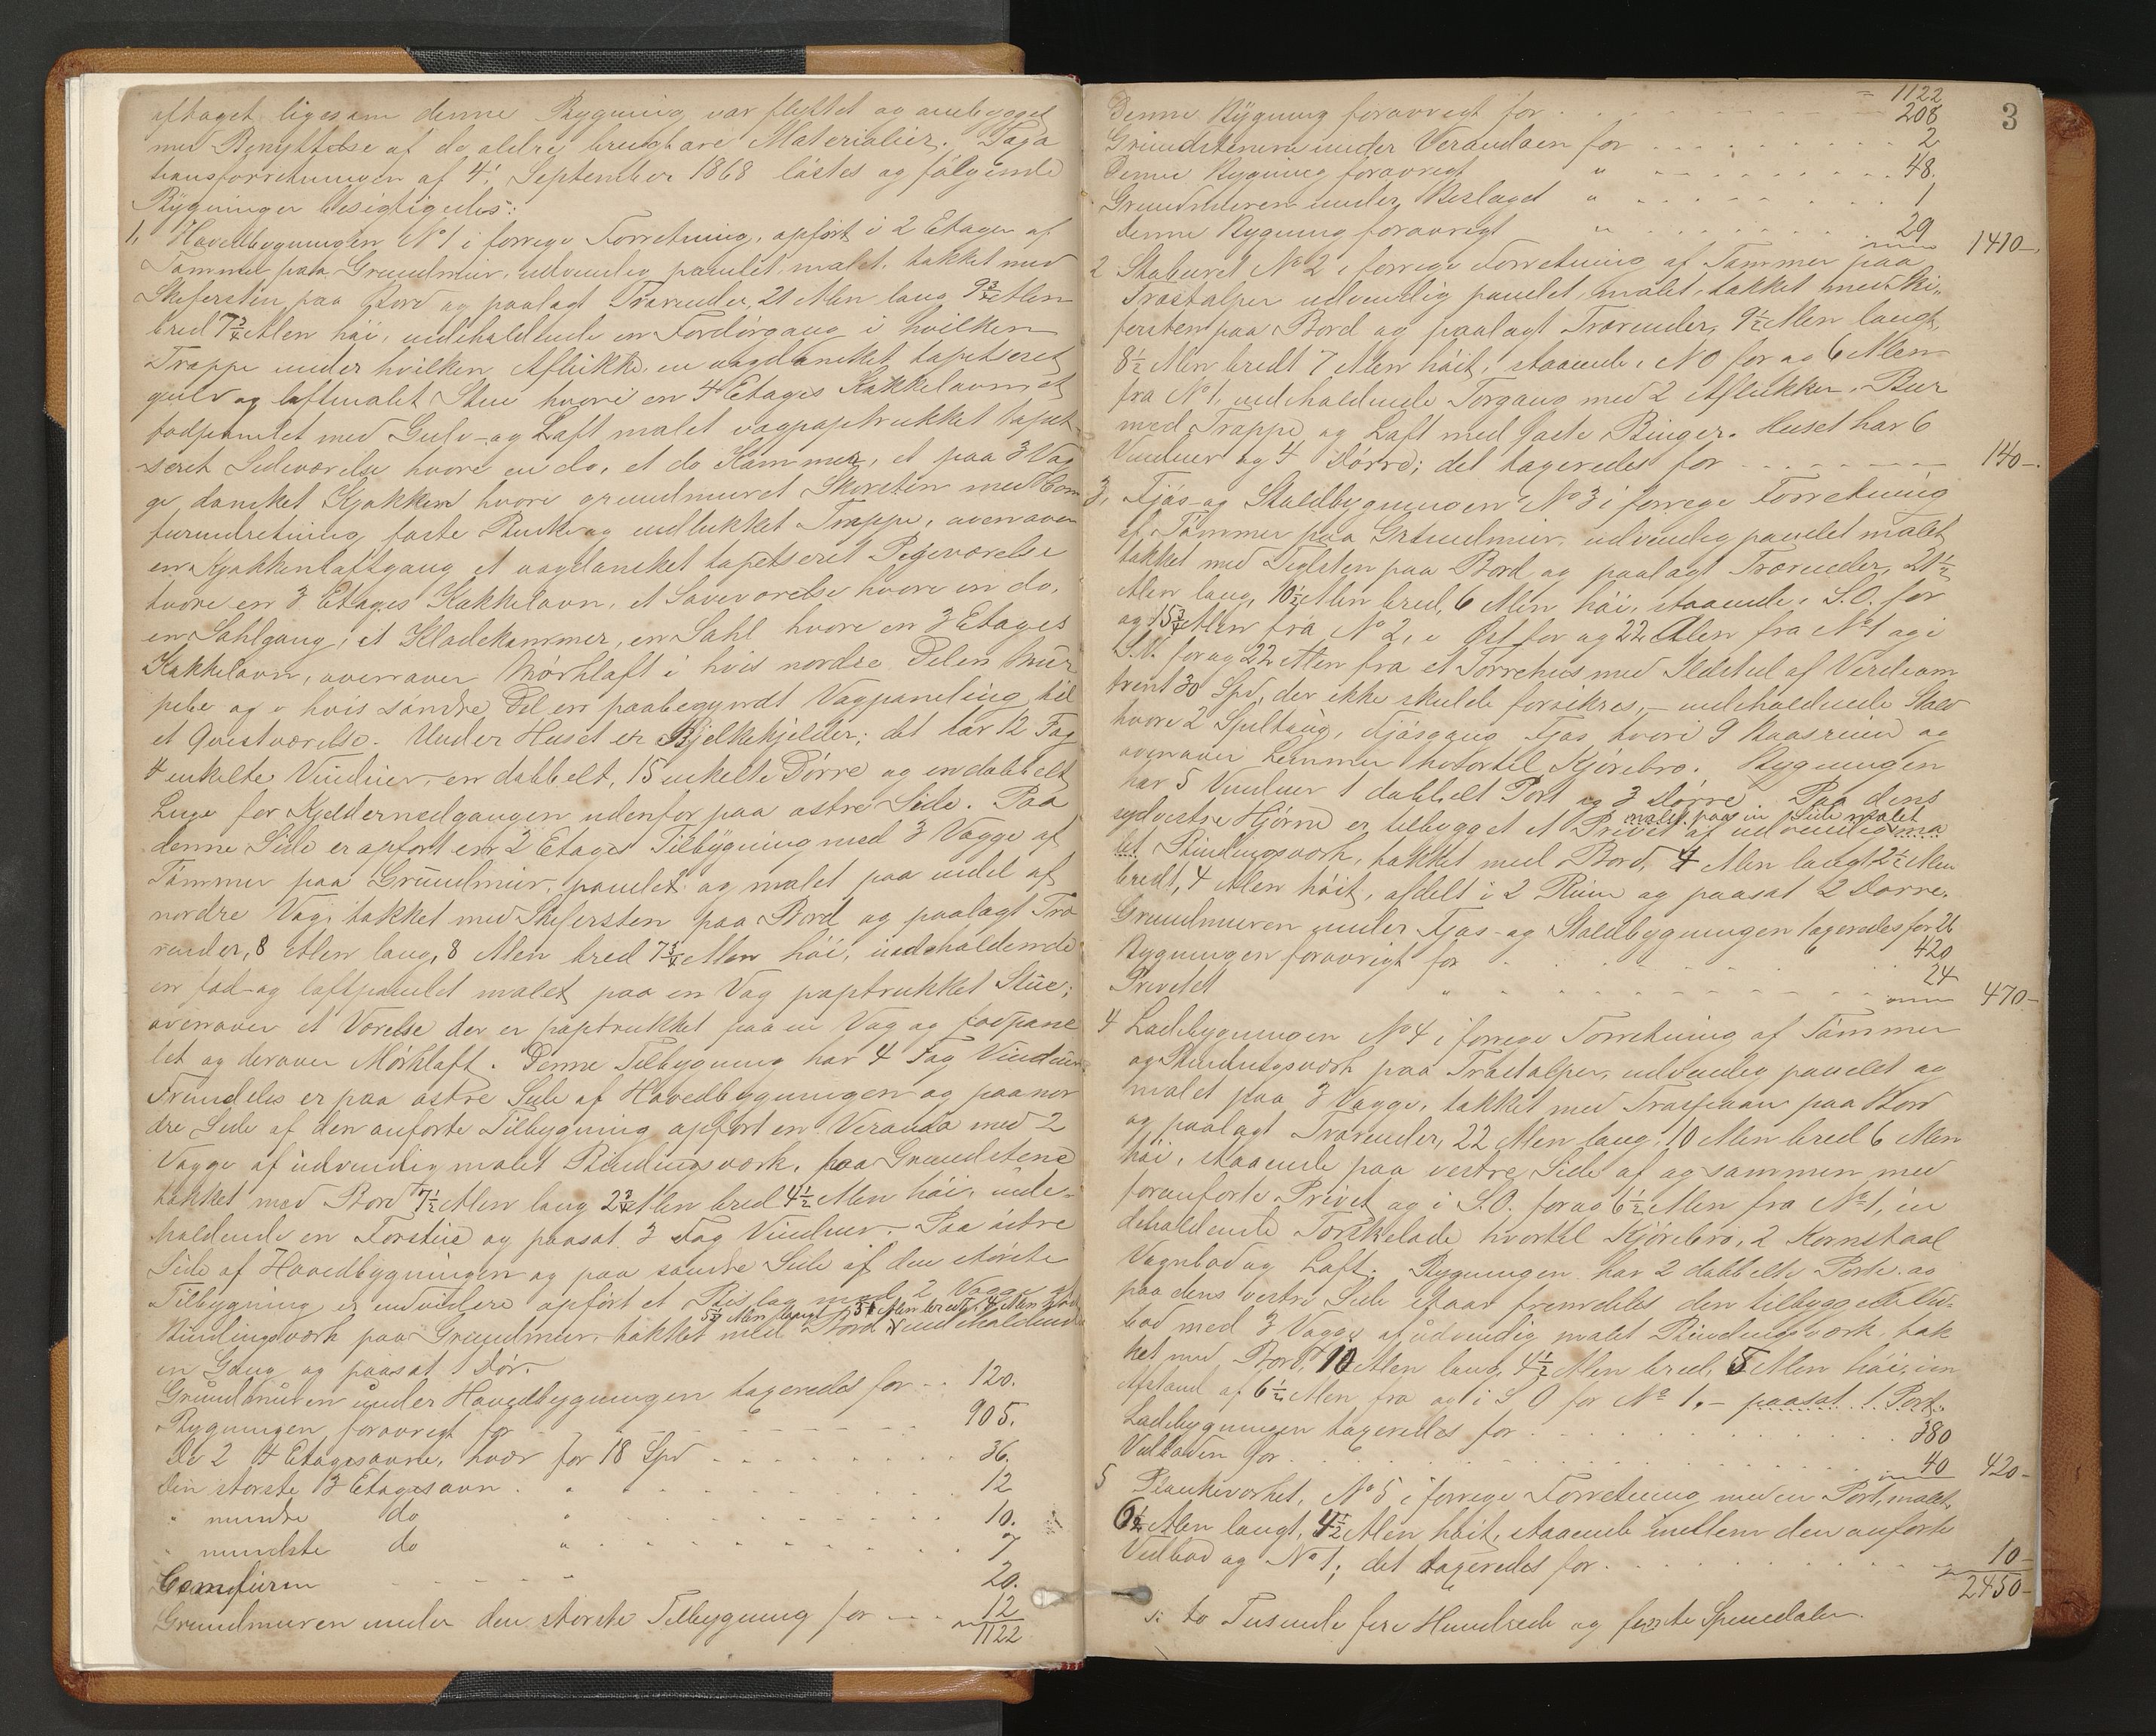 aftaget ligesom denne Bygning var flyttet og ombygget
med Benyttelse af de ældre brugbare Materialier. Taxa
tionsforretningen af 4. September 1868 læstes og følgende
Bygninger besigtigedes:
1, Hovedbygningen No 1 i forrige Forretning, opført i 2 Etager af
Tømmer paa Grundmur, udvendig panelet, malet, takket med
Skifersten paa Bord og paalagt Trærender, 21 Alen lang 9 3/4 Alen
bred 7 3/4 Alen høi, indeholdende en Fordørgang i hvilken
Trappe under hvilken Aflukke, en vægdansket tapetseret
gulv og loftmalet Stue hvori en 4 Etages Kakkelovn, et
fodpanelet med Gulv- og Loft malet vægpaptrukket tapet
seret Sideværelse hvori en do, et do Kammer, et paa 3 Væg
ge dansket Kjøkken hvori grundmuret Skorsten med Com
furindretning faste Bænke og indlukket Trappe, ovenover
en Kjøkkenloftgang et vægdansket tapetseret Pigeværelse
hvori en 3 Etages Kakkelovn, et Soveværelse hvori en do,
en Sahlgang, et Klædekammer, en Sahl hvori en 3 Etages
Kakkelovn, ovenover Mørkloft i hvis nordre Del en Mur
pibe og i hvis søndre Del en paabegyndt Vægpaneling til
et Qvistværelse. Under Huset er Bjelkekjelder; det har 12 Fag
4 enkelte Vinduer, en dobbelt, 15 enkelte Dørre og en dobbelt
Luge for Kjeldernedgangen udenfor paa østre Side. Paa
denne Side er opført en 2 Etages Tilbygning med 3 Vægge af
Tømmer paa Grundmur, panelet og malet paa endel af
nordre Væg, takket med Skifersten paa Bord og paalagt Træ
render, 8 Alen lang, 8 Alen bred 7 3/4 Alen høi, indeholdende
en fod- og loftpanelet malet paa en Væg paptrukket Stue;
ovenover et Værelse der er paptrukket paa en Væg og fodpane
let og derover Mørkloft. Denne Tilbygning har 4 Fag Vinduer.
Fremdeles er paa østre Side af Hovedbygningen og paa nor
dre Side af den anførte Tilbygning opført en Veranda med 2
Vægge af udvendig malet Bindingsværk, paa Grundstene
takket med Bord 7 1/2 Alen lang 2 3/4 Alen bred 4 1/2 Alen høi, inde-
holdende en Forstue og paasat 3 Fag Vinduer. Paa østre
Side af Hovedbygningen og paa søndre Side af den største
Tilbygning er endvidere opført et Bislag med 2 Vægge af
Bindingsværk paa Grundmur, takket med Bord indeholdende
en Gang og paasat 1 Dør.
Grundmuren under Hovedbygningen taxeredes for 120.
Bygningen forøvrigt for 905.
De 2 4 Etagesovne, hver for 18 Spd 36.
Den største 3 Etagesovn " 12
" mindre do " 10.
" mindste do " 7
Comfuren " 20.
Grundmuren under den største Tilbygning for 12
1122
3
= 1122
Denne Bygning forøvrigt for 208
Grundstenene under Verandaen for 2
Denne Bygning forøvrigt " 48.
Grundmuren under Beslaget " 1
denne Bygning forøvrigt " 29 1410-
2 Staburet No 2 i forrige Forretning af Tømmer paa
Træstolper udvendig panelet, malet, takket med Ski,,
fersten paa Bord og paalagt Trærender, 9 1/2 Alen langt,
8 1/2 Alen bredt 7 Alen høit, staaende i N O for og 6 Alen
fra No 1, indeholdende Forgang med 2 Aflukker, Bur
med Trappe og Loft med faste Binger. Huset har 6
Vinduer og 4 Dørre; det taxeredes for 140-.
3, Fjøs- og Staldbygningen No 3 i forrige Forretning
af Tømmer paa Grundmur, udvendig panelet malet
takket med Teglsten paa Bord og paalagt Trærender, 21 1/2
Alen lang, 10 1/2 Alen bred, 6 Alen høi, staaende i S.O. for
og 15 3/4 Alen fra No 2, i Øst for og 22 Alen fra No 1 og i
S.V. for og 22 Alen fra et Tørrehus med Ildsted af Verdi om
trent 30 Spd, der ikke skulde forsikres, - indeholdende Stald
hvori 2 Spiltaug, Fjøsgang, Fjøs hvori 9 Baasrum og
ovenover Lemmer hvortil Kjørebro. Bygningen
har 5 Vinduer 1 dobbelt Port og 3 Dørre. Paa dens
malet paa en Side malet
sydvestre Hjørne er tilbygget et Privet af udvendig ma
let Bindingsværk, takket med Bord, 4 Alen langt 2 1/2 Alen
bredt, 4 Alen høit, afdelt i 2 Rum og paasat 2 Dørre.
Grundmuren under Fjøs- og Staldbygningen taxeredes for 26
Bygningen forøvrigt for 420
Privetet " 24 470-
4 Ladebygningen No 4 i forrige Forretning af Tømmer
og Bindingsværk paa Træstolper, udvendig panelet og
malet paa 3 Vægge, takket med Træspaan paa Bord
og paalagt Trærender, 22 Alen lang, 10 Alen bred 6 Alen
høi, staaende paa vestre Side af og sammen med
foranførte Privet og i S.O. for og 6 1/2 Alen fra No 1, in
deholdende Tørkelade hvortil Kjørebro, 2 Kornstaal
Vognbod og Loft. Bygningen har 2 dobbelte Porte og
paa dens vestre Side staar fremdeles den tilbyggede Ved-
bod med 3 Vægge af udvendig malet Bindingsværk, tak
ket med Bord, 10 Alen lang, 4 1/2 Alen bred, 5 Alen høi, i en
Afstand af 6 1/2 Alen fra og i S O for No 1. - paasat 1 Port.
Ladebygningen taxeredes for 380
Vedboden for 40 420-
5 Plankeværket, No 5 i forrige Forretning med en Port, malet,
6 1/2 Alen langt, 4 1/2 Alen høit, staaende mellem den anførte
Vedbod og No 1; det taxeredes for 10-
2450-
s: to Tusinde fire Hundrede og femti Speciedaler.